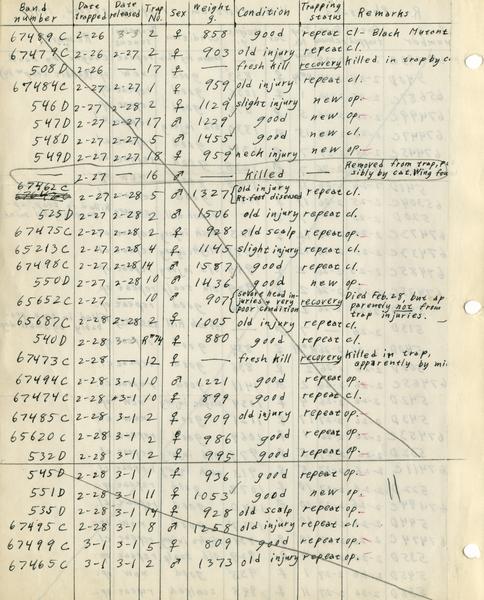 Band number Date trapped Date released Trap No. Sex Weight g. Condition Trapping status Remarks
67489C 2-26 3-3 2 ♀ 858 good repeat cl- Black Mutant
67479C 2-26 2-27 2 ♀ 903 old injury repeat cl.
508D 2-26 — 17 ♀ — fresh kill recovery Killed in trap by c
67484C 2-27 2-27 1 ♀ 959 old injury repeat cl.
546D 2-27 2-28 2 ♀ 1129 slight injury new op.
547D 2-27 2-27 17 ♂ 1229 good new op.
548D 2-27 2-27 5 ♂ 1455 good new cl.
549D 2-27 2-27 18 ♀ 959 neck injury new op.
— 2-27 — 16 ♂ — Killed — Removed from trap, pos
sibly by cat. Wing fou
67462C 2-27 2-28 5 ♂ 1327 { old injury Rt. foot diseased repeat cl.
525D 2-27 2-28 2 ♂ 1506 old injury repeat cl.
67475C 2-27 2-28 2 ♀ 928 old scalp repeat op.
65213C 2-27 2-28 4 ♀ 1145 slight injury repeat cl.
67498C 2-27 2-28 14 ♂ 1587 good repeat cl.
550D 2-27 2-28 10 ♂ 1436 good new op.
65652C 2-27 — 10 ♂ 907 { severe head in-juries & very poor condition recovery Died Feb. 28, but ap
parently not from
trap injuries.
65687C 2-28 2-28 2 ♀ 1005 old injury repeat cl.
540D 2-28 3-3 R⁰74 ♀ 880 good repeat cl.
67473C 2-28 — 12 ♀ — fresh kill recovery Killed in trap,
apparently by mi
67494C 2-28 3-1 10 ♂ 1221 good repeat op.
67474C 2-28 3-1 10 ♀ 899 good repeat cl.
67485C 2-28 3-1 2 ♀ 909 old injury repeat op.
65620C 2-28 3-1 2 ♀ 986 good repeat op.
532D 2-28 3-1 2 ♀ 995 good repeat op.
545D 2-28 3-1 1 ♀ 936 good repeat op.
551D 2-28 3-1 11 ♂ 1053 good new op.
535D 2-28 3-1 14 ♀ 928 old scalp repeat op.
67495C 2-28 3-1 8 ♂ 1258 old injury repeat cl.
67499C 3-1 3-1 5 ♀ 809 good repeat op.
67465C 3-1 3-1 2 ♂ 1373 old injury repeat op.
11